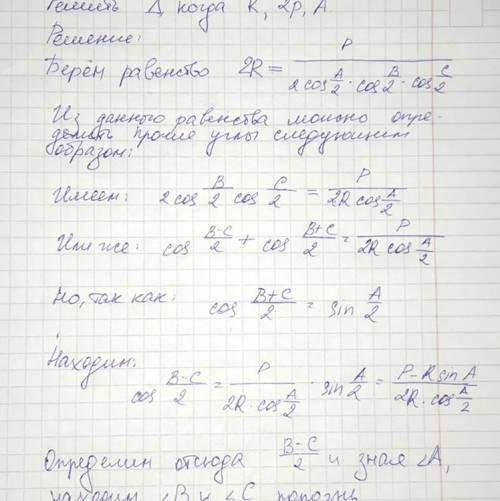 Решить Δ, когда R, 2p, A
Решение:
Берём равенство 2R = P / (2 cos A/2 · cos B/2 · cos C/2)
Из данного равенства можно опре-
делить прочие углы следующим
образом:
Имеем: 2 cos B/2 cos C/2 = P / (2R cos A/2)
Или же: cos (B-C)/2 + cos (B+C)/2 = P / (2R cos A/2)
Но, так как: cos (B+C)/2 = sin A/2
Находим:
cos (B-C)/2 = P / (2R · cos A/2) · sin A/2 = (P - R sin A) / (2R · cos A/2)
Определим отсюда (B-C)/2 и зная ∠A,
находим ∠B и ∠C